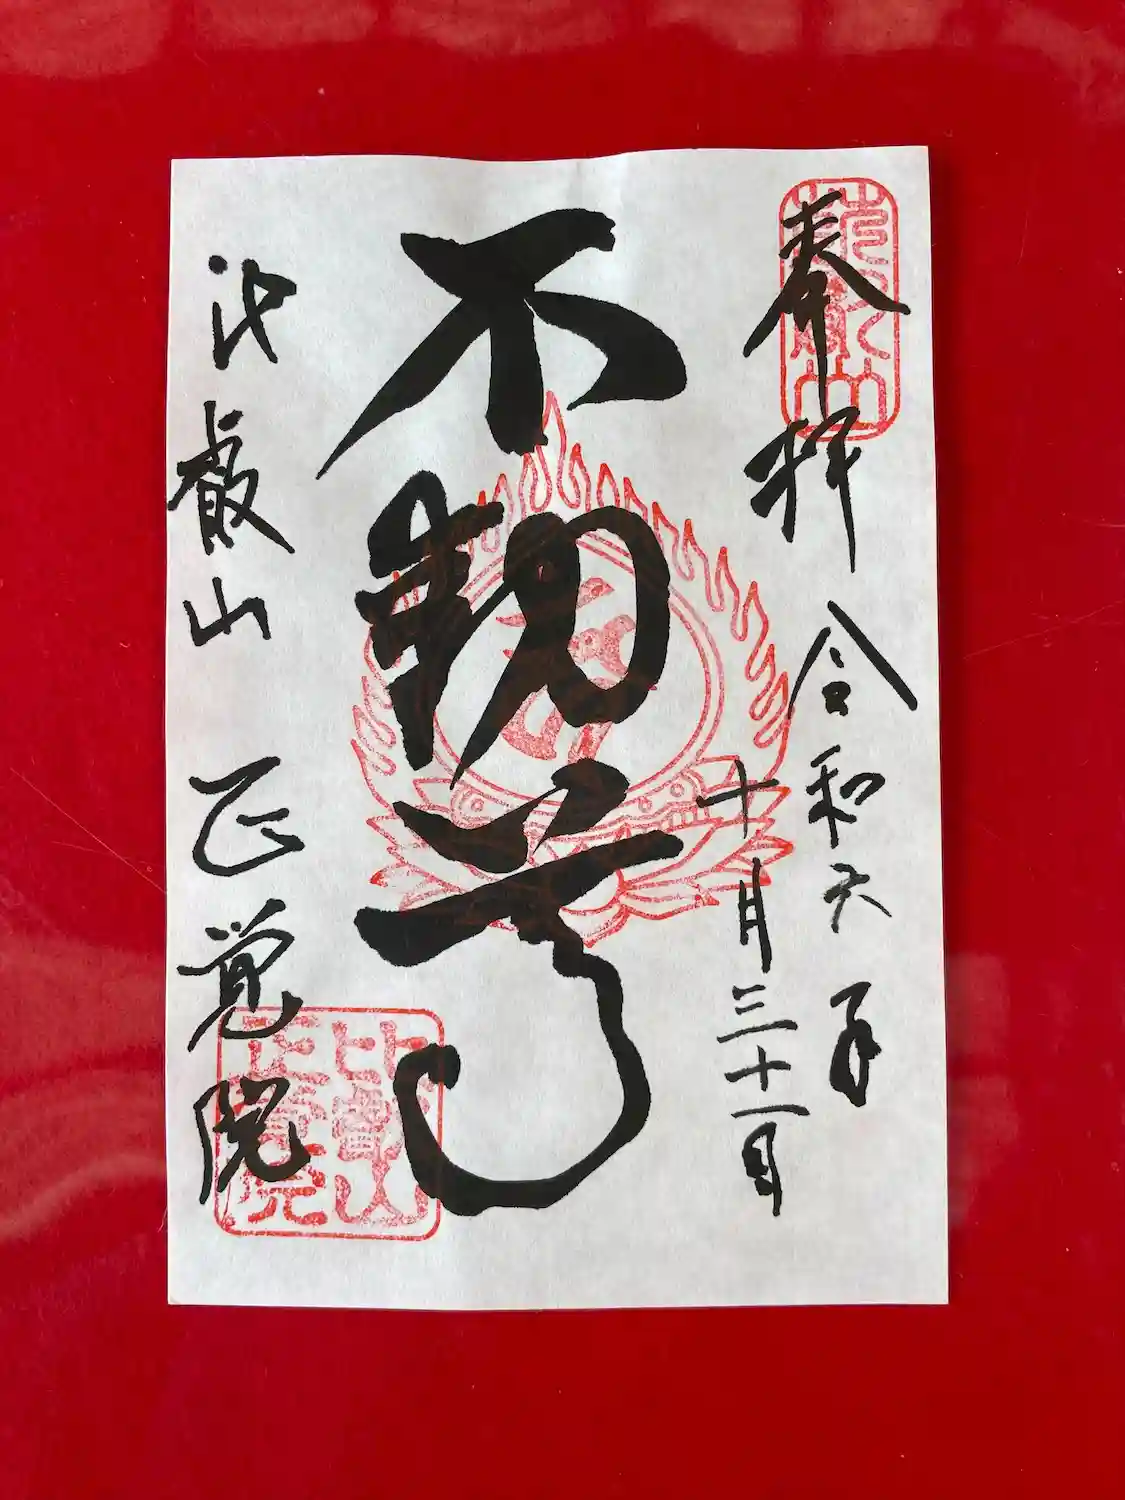 奉拝
令和六年
十月三十一日
不動尊
比叡山 正覚院
比叡山
正覺院